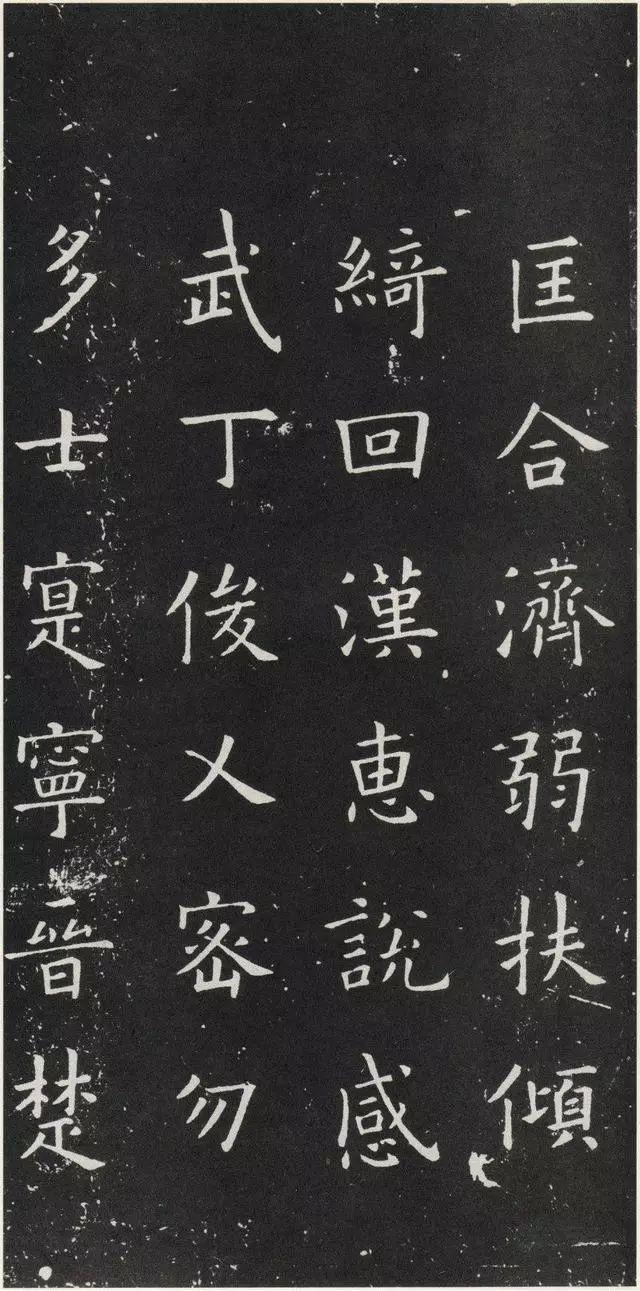 匡合濟弱扶傾
綺回漢恵說感
武丁俊乂密勿
多士寔寧晉楚